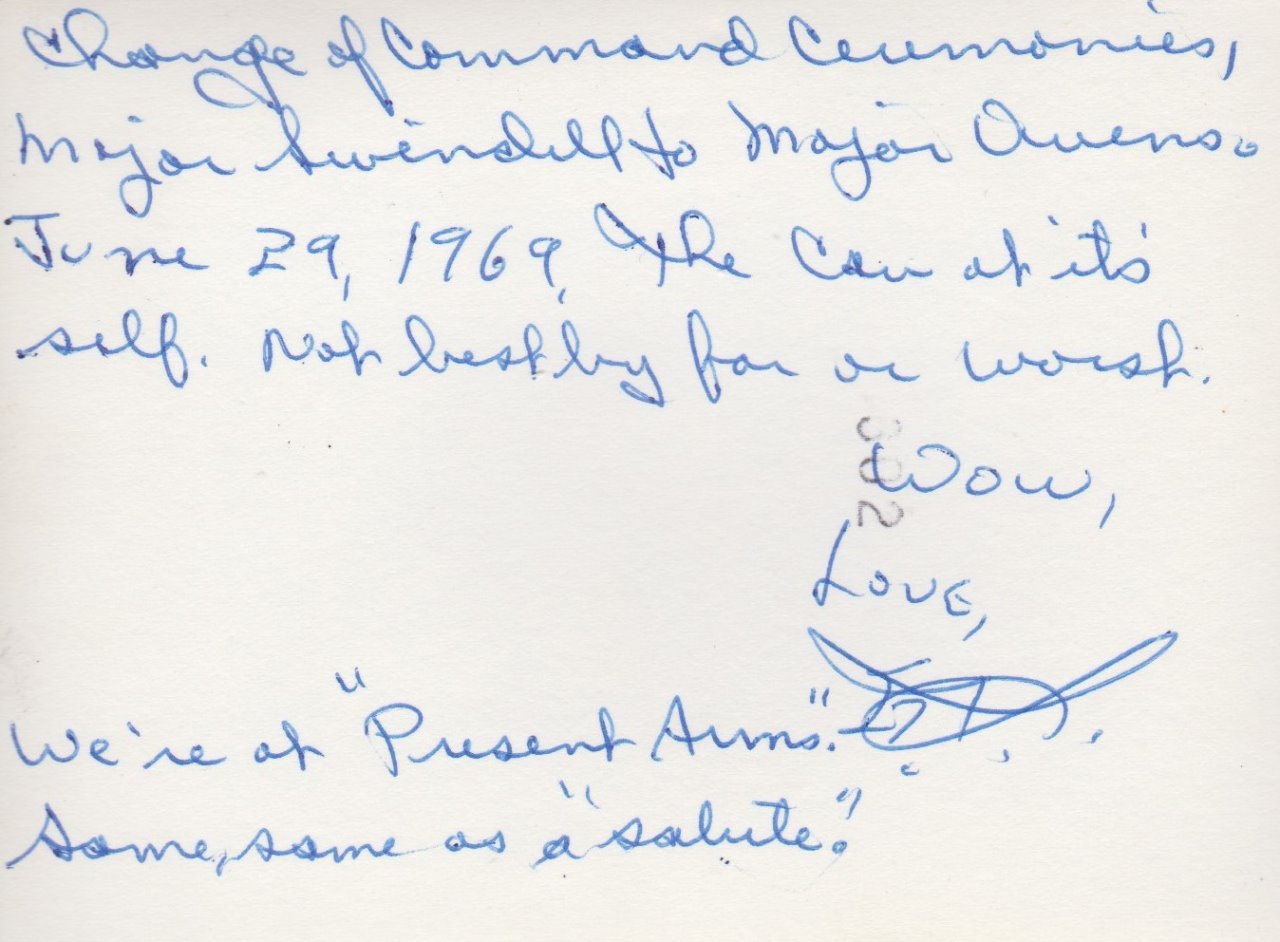 Change of Command Ceremonies,
Major Swindell to Major Owens.
June 29, 1969, The Cav at it's
self. Not best by far or worst.
Wow,
Love,
We're at "Present Arms".
Same, same as a "salute."